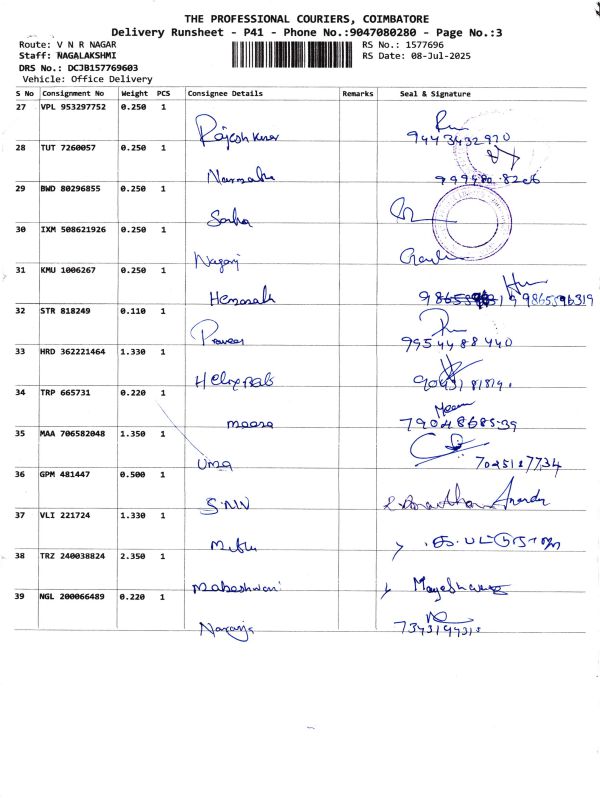 THE PROFESSIONAL COURIERS, COIMBATORE
Delivery Runsheet - P41 - Phone No.:9047080280 - Page No.:3
Route: V N R NAGAR
RS No.: 1577696
Staff: NAGALAKSHMI
RS Date: 08-Jul-2025
DRS No.: DCJB157769603
Vehicle: Office Delivery
S No Consignment No Weight PCS Consignee Details Remarks Seal & Signature
27 VPL 953297752 0.250 1
Rajesh Kumar 9443432970
28 TUT 7260057 0.250 1
Narmatha
29 BWD 80296855 0.250 1
30 IXM 508621926 0.250 1
Nagaraj
31 KMU 1006267 0.250 1
9865596319
32 STR 818249 0.110 1
Praveen 9954488440
33 HRD 362221464 1.330 1
34 TRP 665731 0.220 1
meena 7904868539
35 MAA 706582048 1.350 1
Uma 7025187734
36 GPM 481447 0.500 1
S.NIV
37 VLI 221724 1.330 1
38 TRZ 240038824 2.350 1
Maheshwari
39 NGL 200066489 0.220 1